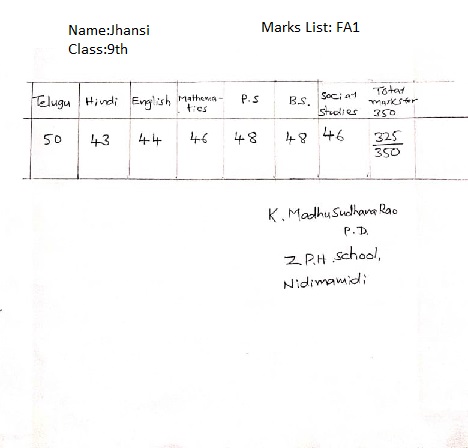 Name:Jhansi
Marks List: FA1
Class:9th
Telugu Hindi English Mathema-ties P.S B.S. Social Studies Total marks for 350
50 43 44 46 48 48 46 325/350
K. MadhuSudhana Rao
P.D.
Z.P.H School,
Nidimamidi